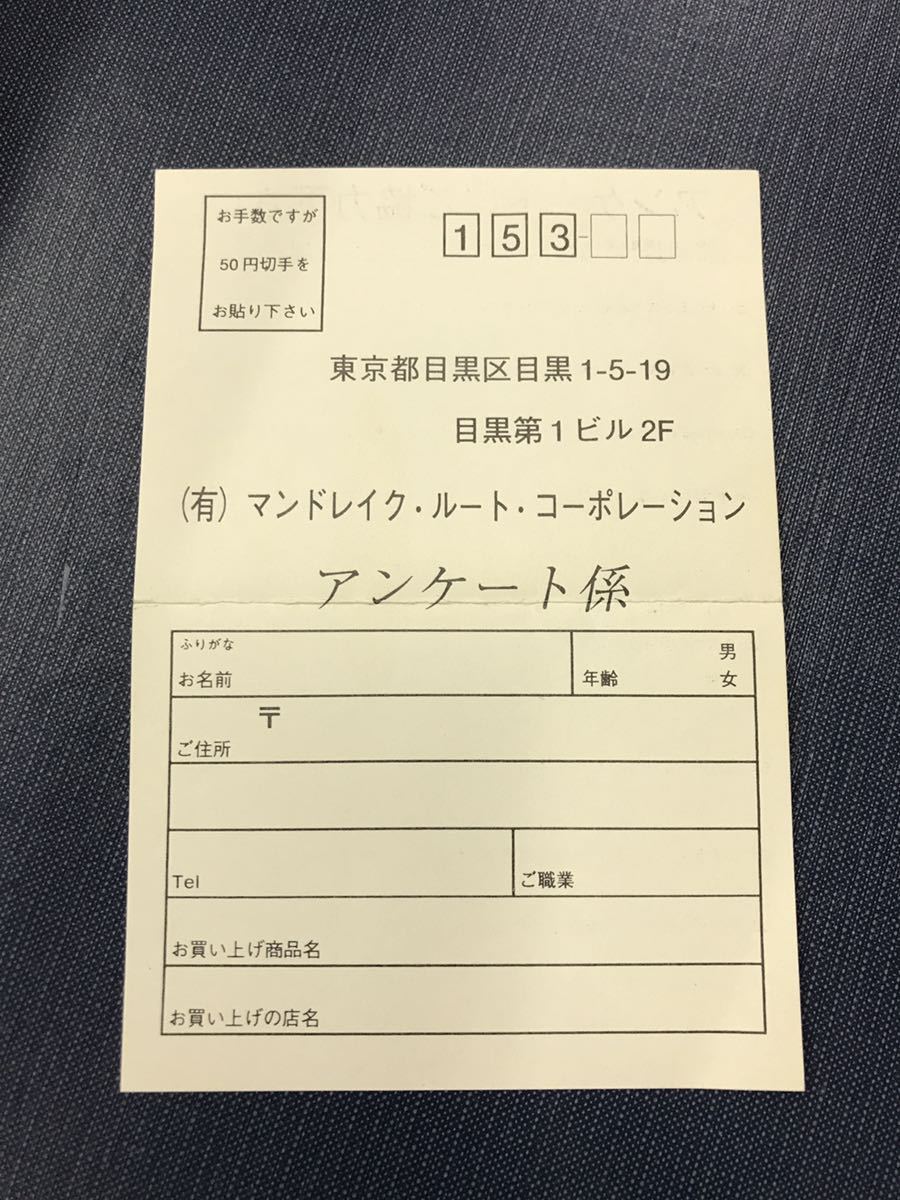 お手数ですが
50円切手を
お貼り下さい
153-
東京都目黒区目黒1-5-19
目黒第1ビル2F
(有) マンドレイク・ルート・コーポレーション
アンケート係
ふりがな
お名前
年齢
男
女
〒
ご住所
Tel
ご職業
お買い上げ商品名
お買い上げの店名